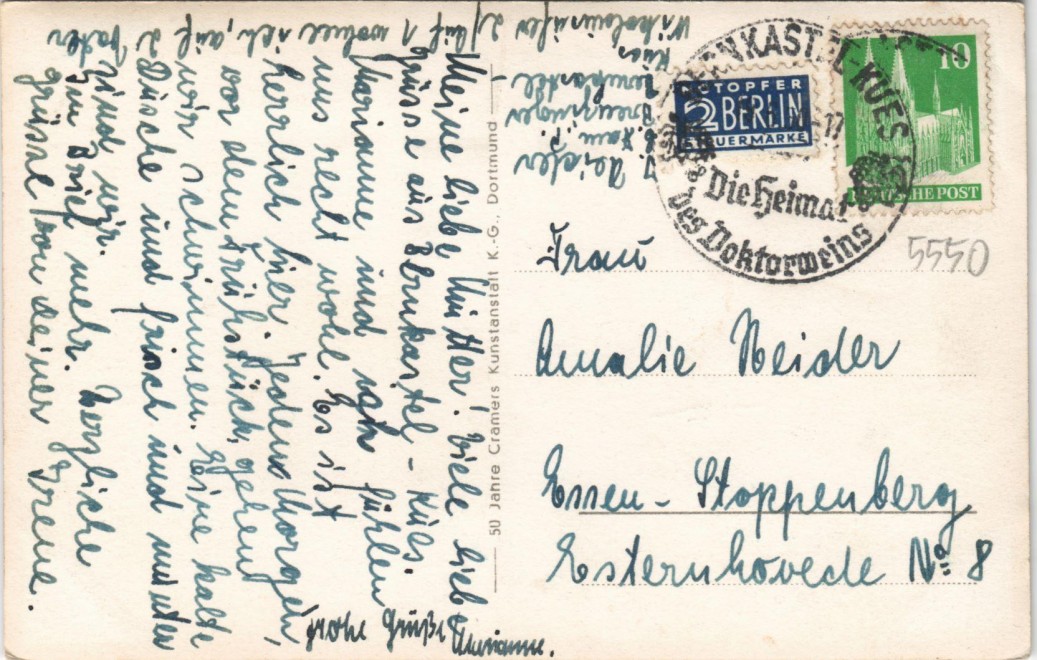 Meine liebe Mutter! Viele liebe
Grüsse aus Bernkastel - Kues.
Marianne und ich fühlen
uns recht wohl. Es ist
herrlich hier. Jeden Morgen,
vor dem Frühstück, gehen
wir schwimmen. Eine kalte
Dusche und frisch und munter
sind wir.
Im Brief mehr. Herzliche
Grüsse von deiner Irene.
frohe Grüße
Marianne.
wohne ich, auf 2
Vater
J. Neider
b. Fam. P.
Kues
50 Jahre Cramers Kunstanstalt K.-G., Dortmund
NOTOPFER
2 BERLIN
STEUERMARKE
10
DEUTSCHE POST
BERNKASTEL-KUES
Die Heimat
des Doktorweins
5550
Frau
Amalie Neider
Essen - Stoppenberg
Esternhovede No 8